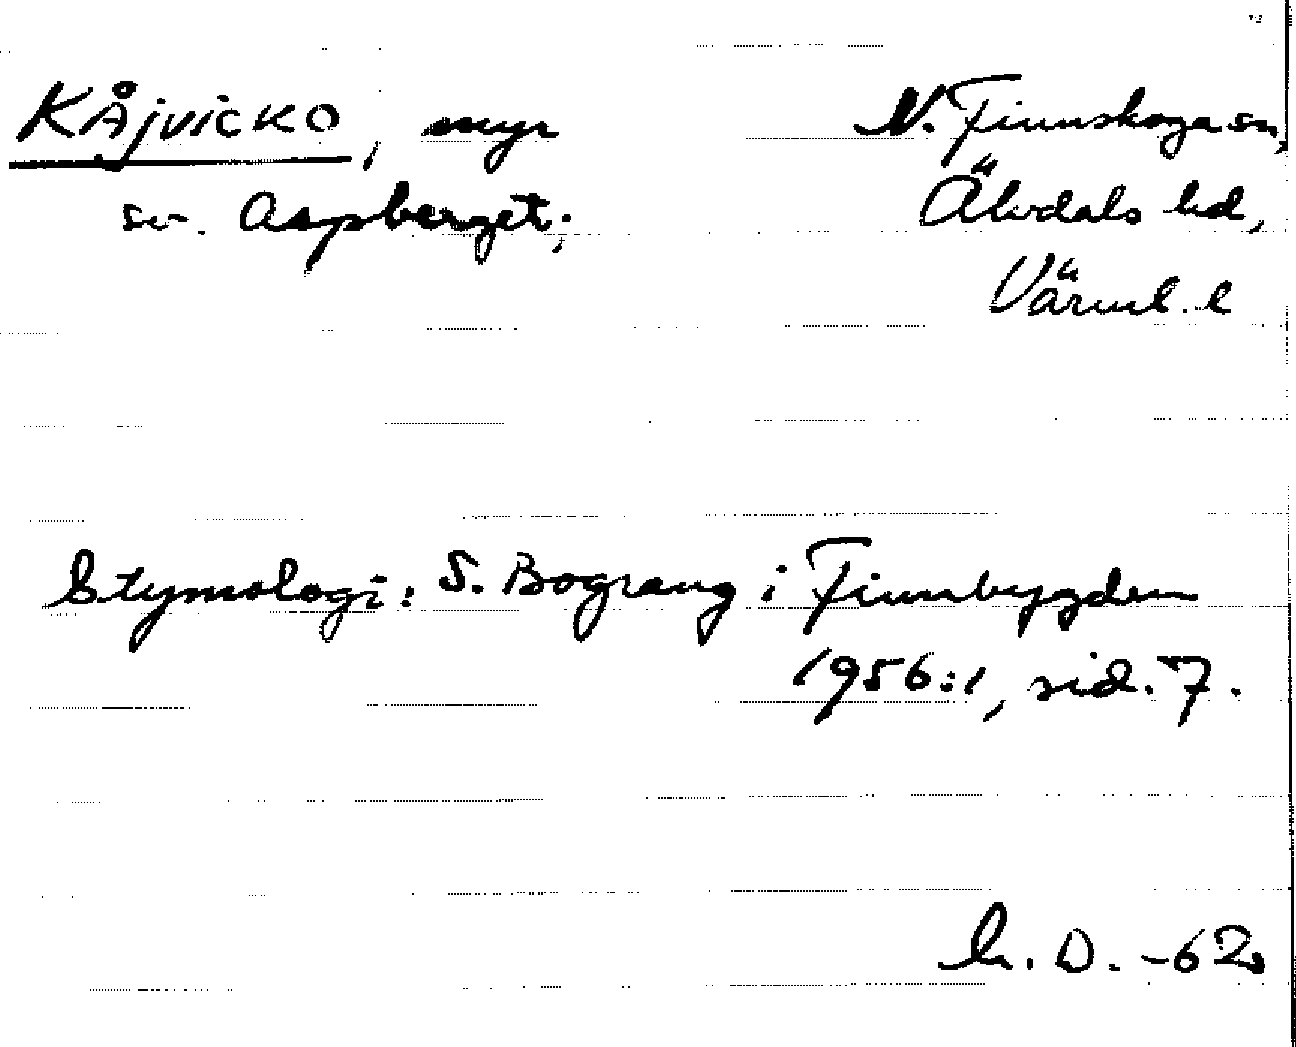 KÅJVICKO, myr
N. Finnskoga sn,
sv. Aspberget;
Älvdals hd,
Värml. l
Etymologi: S. Bograng i Finnbygden
1956:1, sid. 7.
D. -62